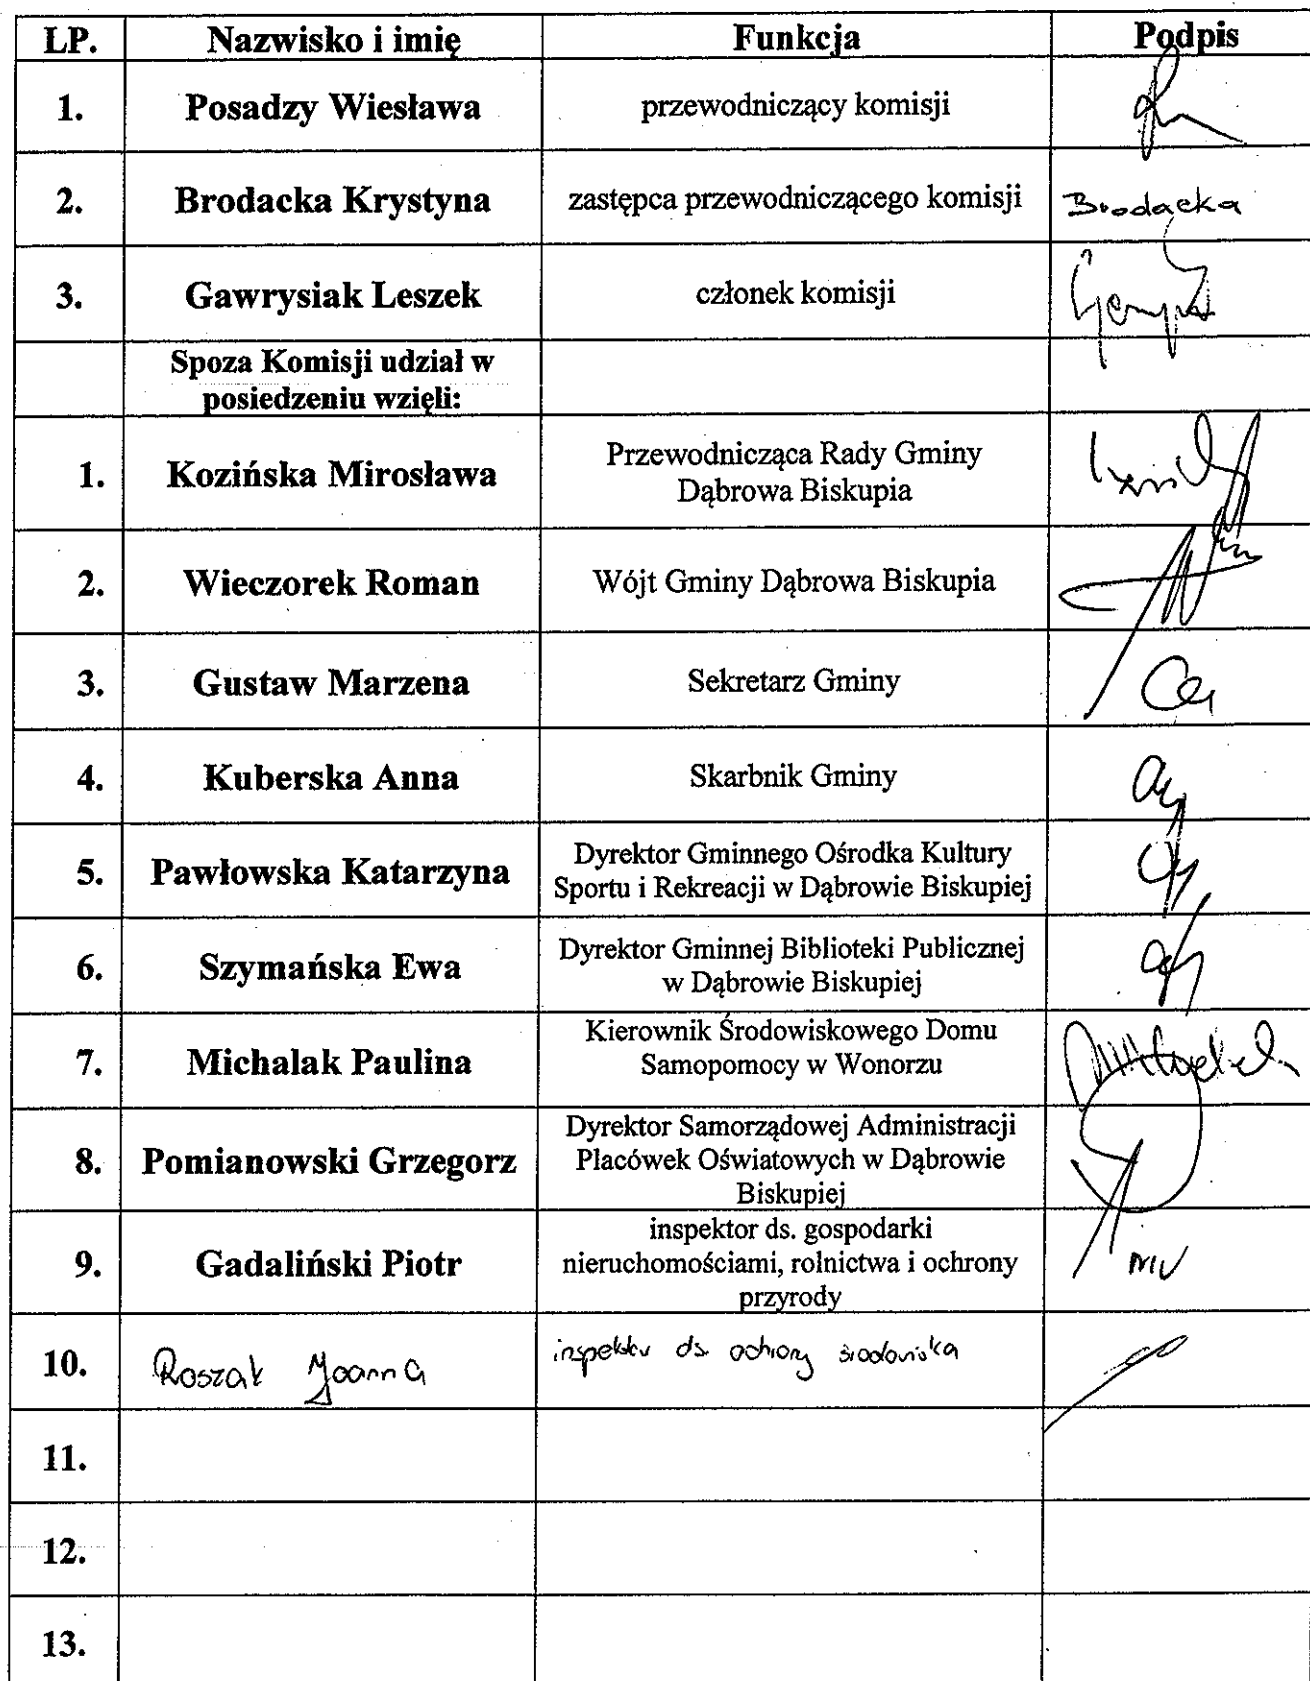 LP. Nazwisko i imię Funkcja Podpis
1. Posadzy Wiesława przewodniczący komisji
2. Brodacka Krystyna zastępca przewodniczącego komisji Brodacka
3. Gawrysiak Leszek członek komisji
Spoza Komisji udział w
posiedzeniu wzięli:
1. Kozińska Mirosława Przewodnicząca Rady Gminy
Dąbrowa Biskupia
2. Wieczorek Roman Wójt Gminy Dąbrowa Biskupia
3. Gustaw Marzena Sekretarz Gminy
4. Kuberska Anna Skarbnik Gminy
5. Pawłowska Katarzyna Dyrektor Gminnego Ośrodka Kultury
Sportu i Rekreacji w Dąbrowie Biskupiej
6. Szymańska Ewa Dyrektor Gminnej Biblioteki Publicznej
w Dąbrowie Biskupiej
7. Michalak Paulina Kierownik Środowiskowego Domu
Samopomocy w Wonorzu
8. Pomianowski Grzegorz Dyrektor Samorządowej Administracji
Placówek Oświatowych w Dąbrowie
Biskupiej
9. Gadaliński Piotr inspektor ds. gospodarki
nieruchomościami, rolnictwa i ochrony
przyrody
10. Roszak Joanna inspektor ds. ochrony środowiska
11.
12.
13.